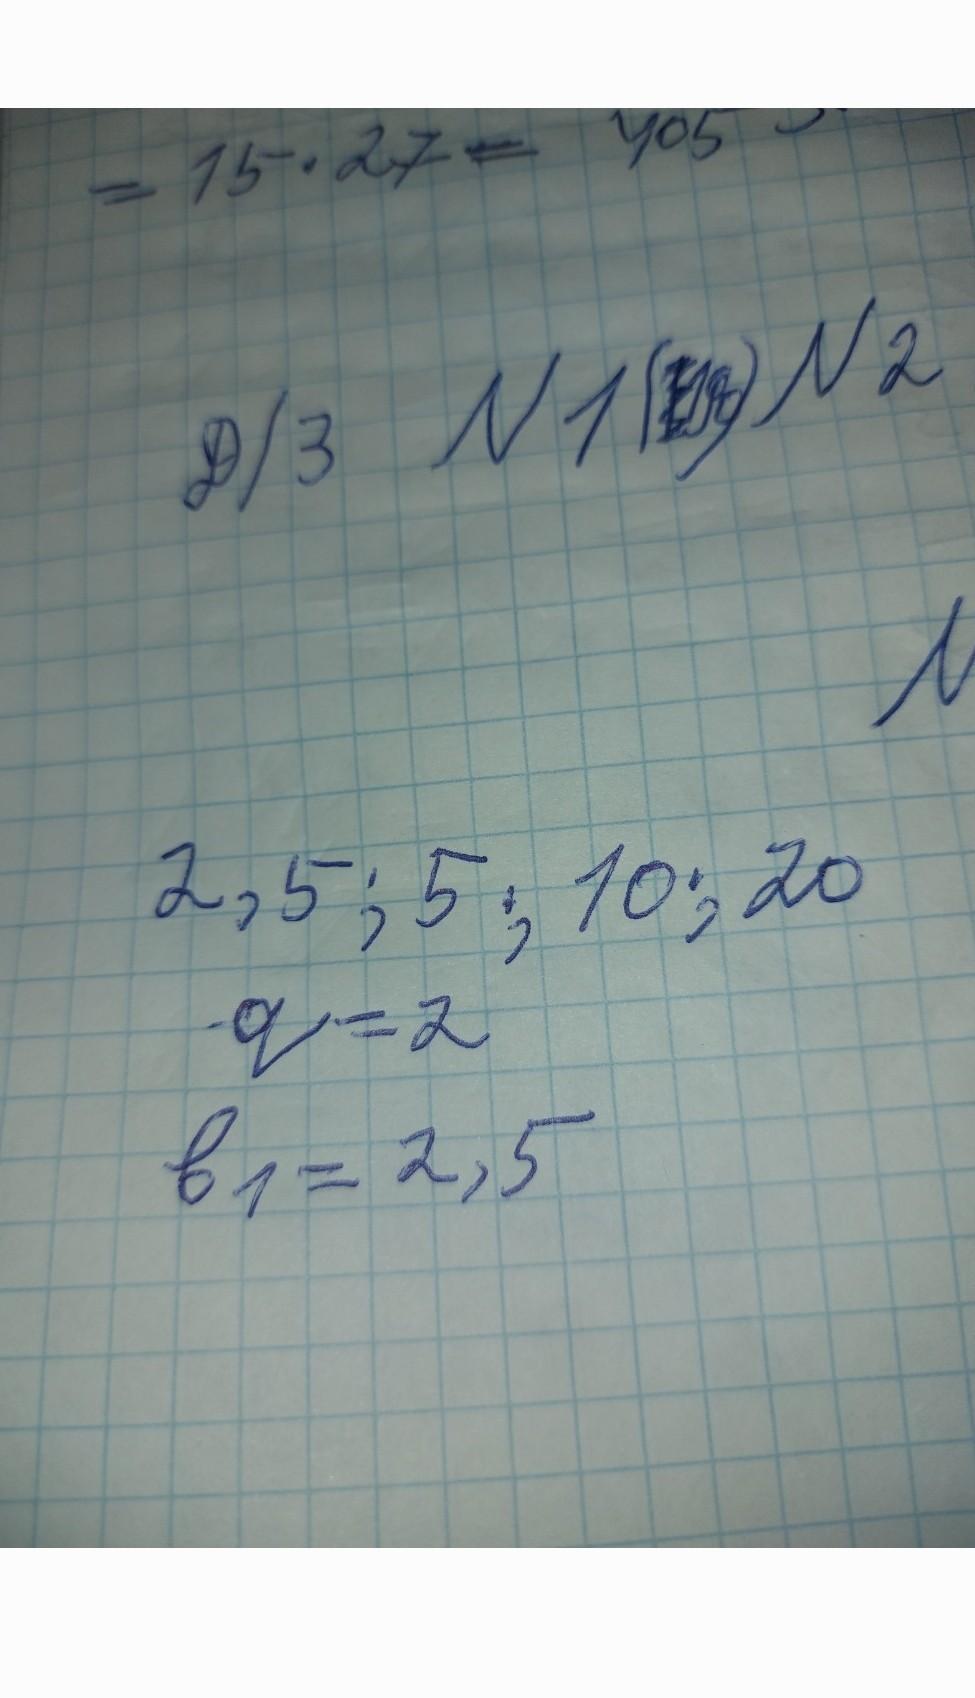 = 15 · 27 = 405
Д/З N1 ( ) N2
N
2,5; 5; 10; 20
q = 2
b1 = 2,5